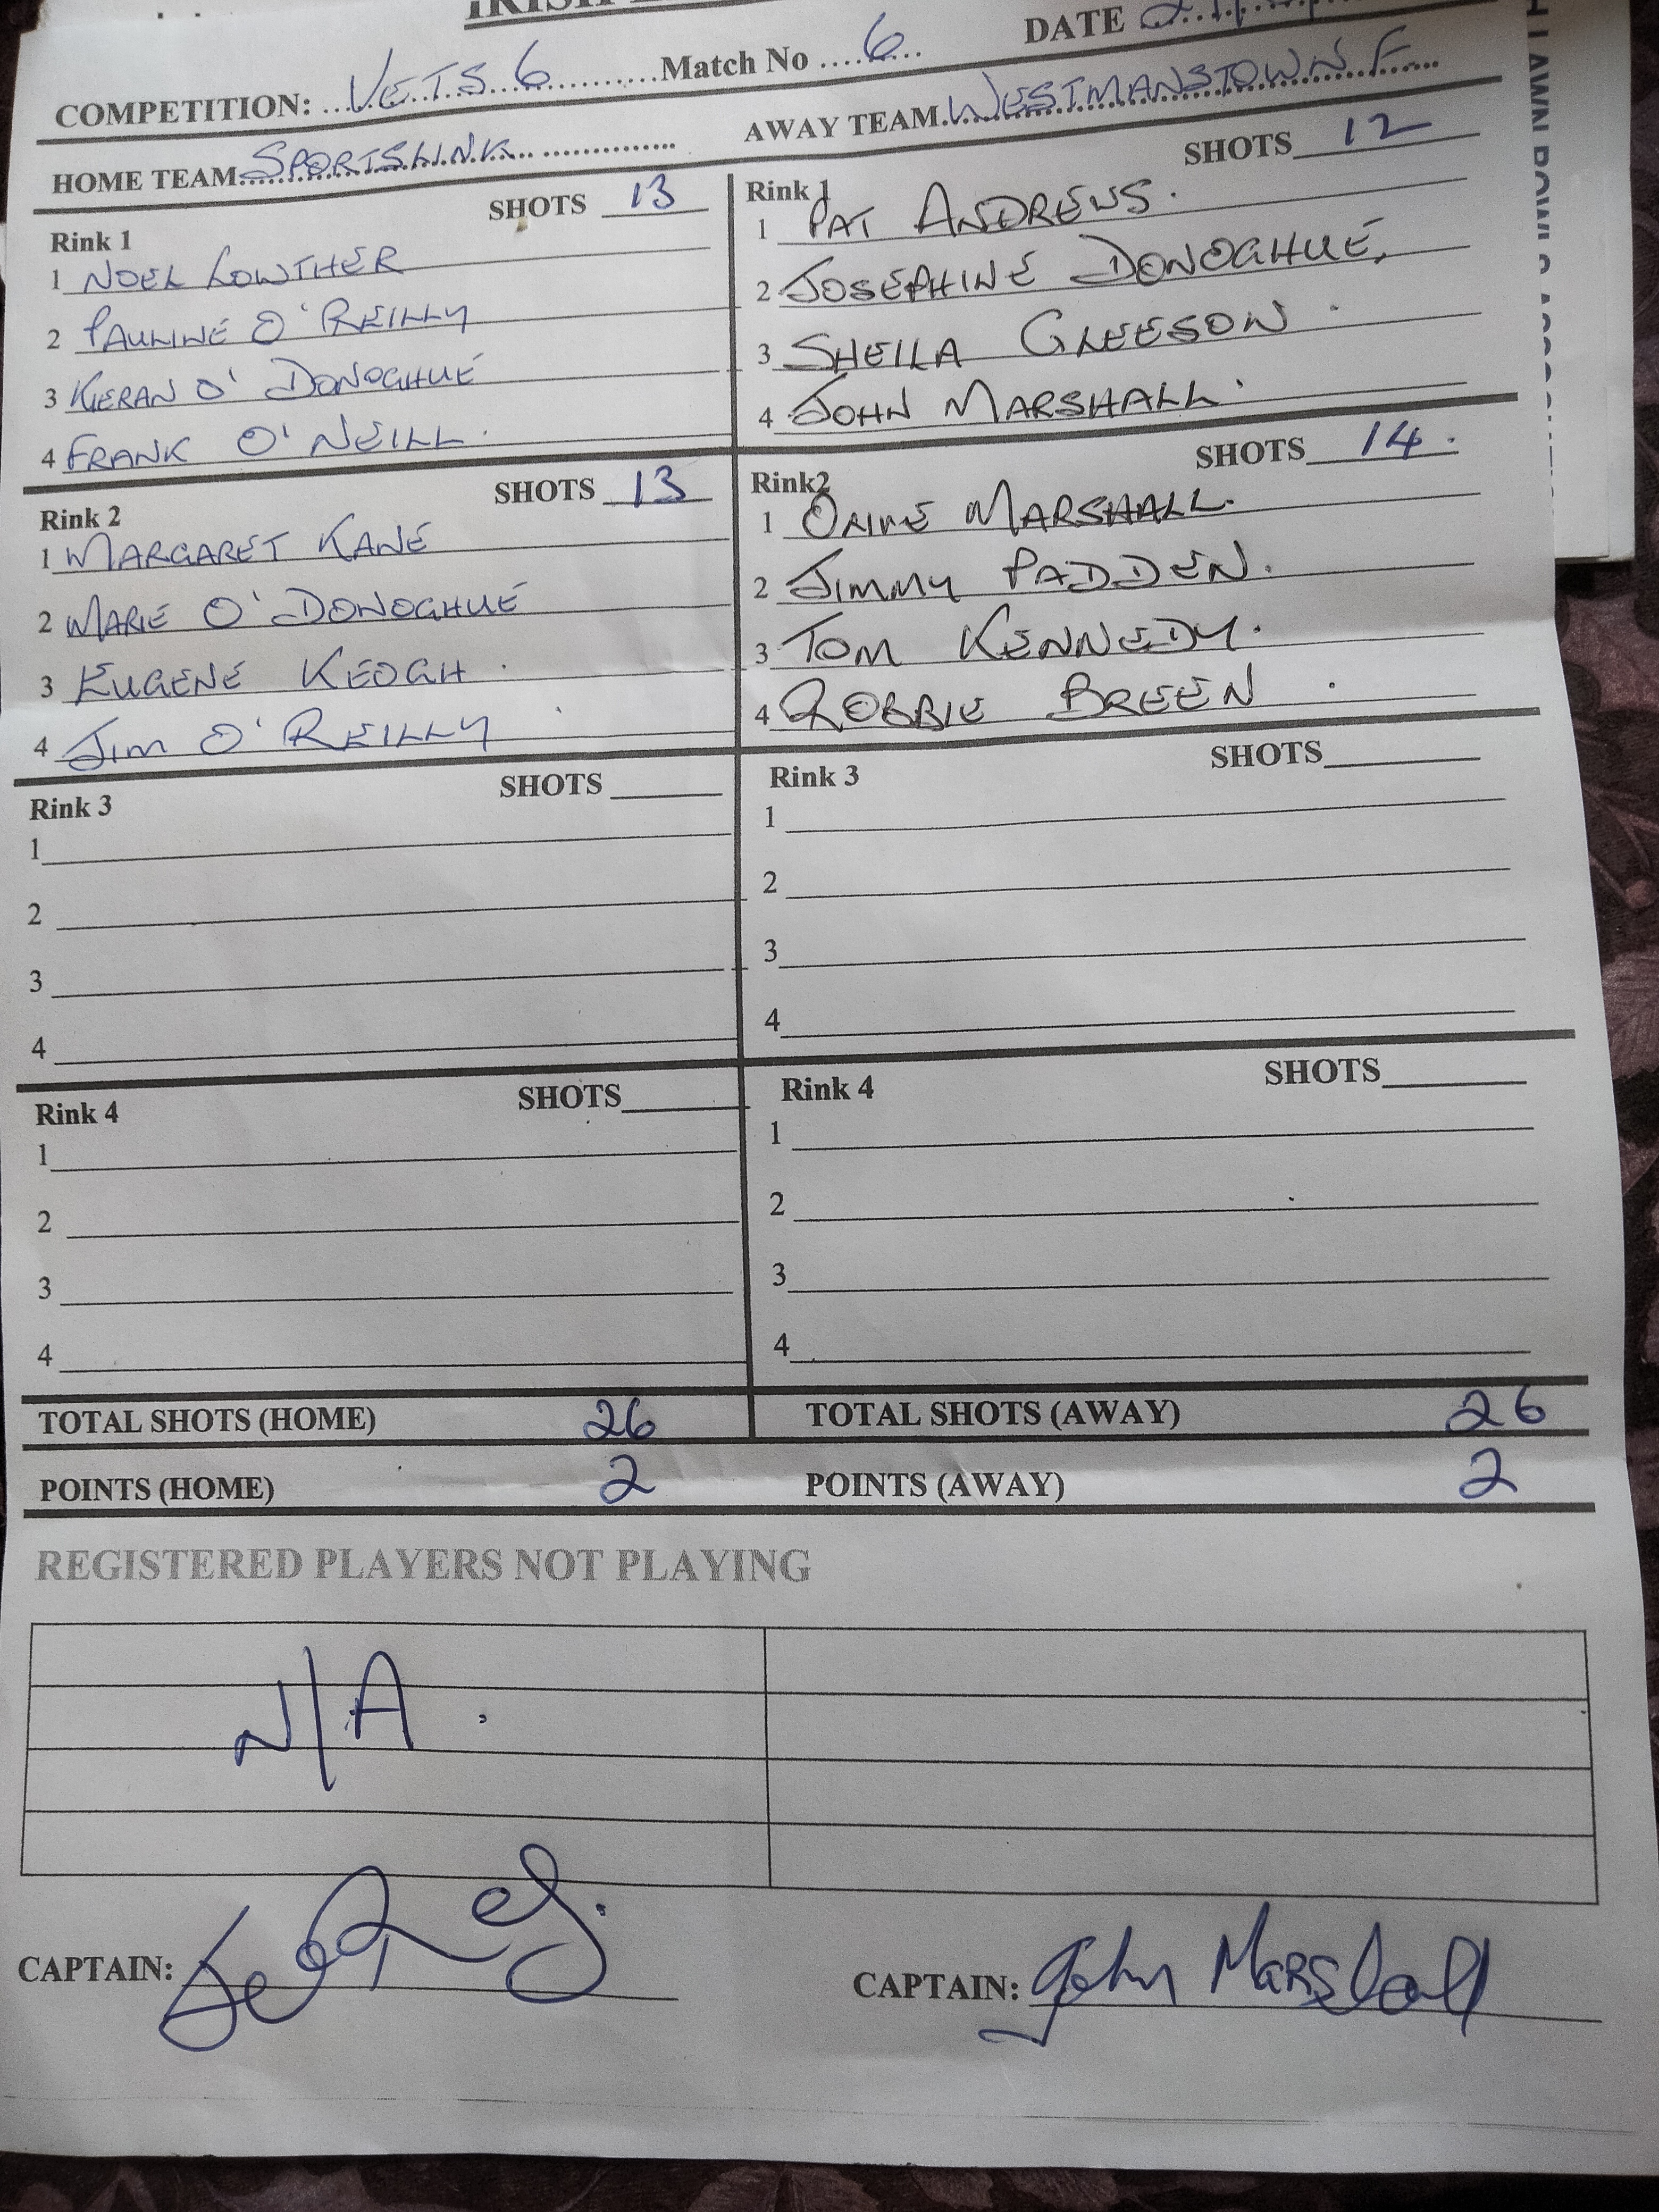 COMPETITION: VETS 6 Match No 6 DATE
HOME TEAM SPORTSLINK AWAY TEAM WESTMANSTOWN F
SHOTS 13 SHOTS 12
Rink 1 Rink 1
1 NOEL LOWTHER 1 PAT ANDREWS.
2 PAULINE O'REILLY 2 JOSEPHINE DONOGHUE,
3 KIERAN O'DONOGHUE 3 SHEILA GLEESON.
4 FRANK O'NEILL. 4 JOHN MARSHALL.
SHOTS 13 SHOTS 14.
Rink 2 Rink2
1 MARGARET KANE 1 OLIVE MARSHALL.
2 MARIE O'DONOGHUE 2 JIMMY PADDEN.
3 EUGENE KEOGH. 3 TOM KENNEDY.
4 JIM O'REILLY 4 ROBBIE BREEN.
SHOTS SHOTS
Rink 3 Rink 3
1 1
2 2
3 3
4 4
SHOTS SHOTS
Rink 4 Rink 4
1 1
2 2
3 3
4 4
TOTAL SHOTS (HOME) 26 TOTAL SHOTS (AWAY) 26
POINTS (HOME) 2 POINTS (AWAY) 2
REGISTERED PLAYERS NOT PLAYING
N/A.
CAPTAIN: CAPTAIN: John Marshall